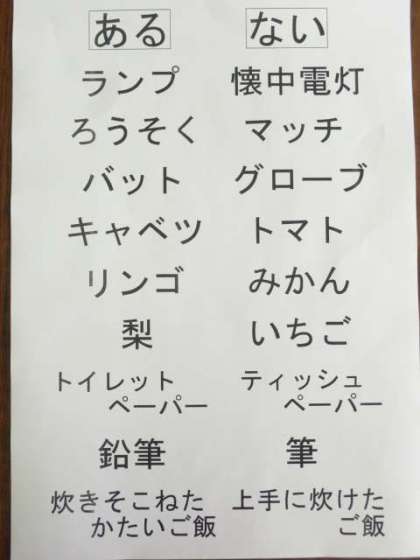 ある ない
ランプ 懐中電灯
ろうそく マッチ
バット グローブ
キャベツ トマト
リンゴ みかん
梨 いちご
トイレット ティッシュ
ペーパー ペーパー
鉛筆 筆
炊きそこねた 上手に炊けた
かたいご飯 ご飯